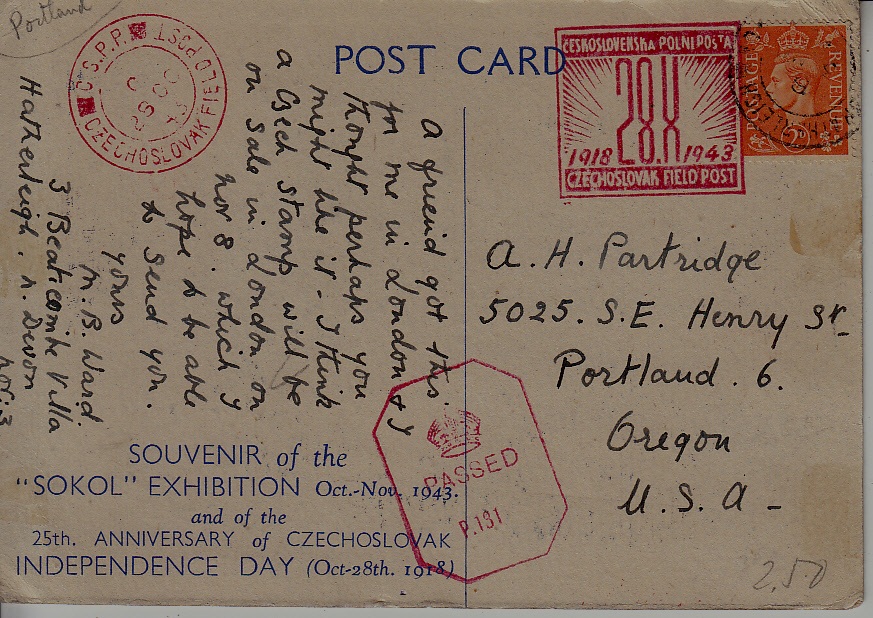 Portland
C.S.P.P.
CZECHOSLOVAK FIELD POST
28
POST CARD
ČESKOSLOVENSKÁ POLNÍ POŠTA
28.X
1918 1943
CZECHOSLOVAK FIELD POST
POSTAGE
REVENUE
A friend got this
for me in London & I
thought perhaps you
might like it - I think
a Czech stamp will be
on sale in London on
Nov 8. which I
hope to be able
to send you.
yours
M. B. Ward.
3 Beatcombe Villa
Hatherleigh. N. Devon
Nov. 3
A. H. Partridge
5025. S.E. Henry St
Portland. 6.
Oregon
U. S. A -
PASSED
P.131
SOUVENIR of the
"SOKOL" EXHIBITION Oct.-Nov. 1943.
and of the
25th. ANNIVERSARY of CZECHOSLOVAK
INDEPENDENCE DAY (Oct-28th. 1918)
2.50